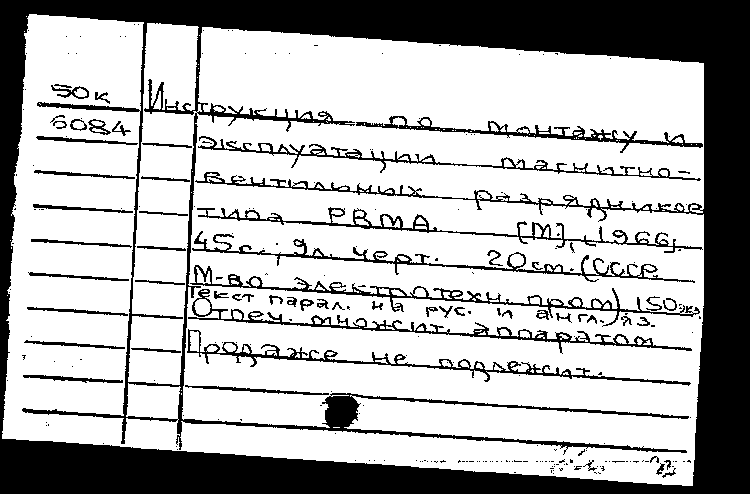 50к Инструкция по монтажу и
6084 эксплуатации магнитно-
вентильных разрядников
типа РВМА. [М], [1966].
45с.; 9л. черт. 20см. (СССР.
М-во электротехн. пром) 150экз.
Текст парал. на рус. и англ. яз.
Отпеч. множит. аппаратом
Продаже не подлежит.